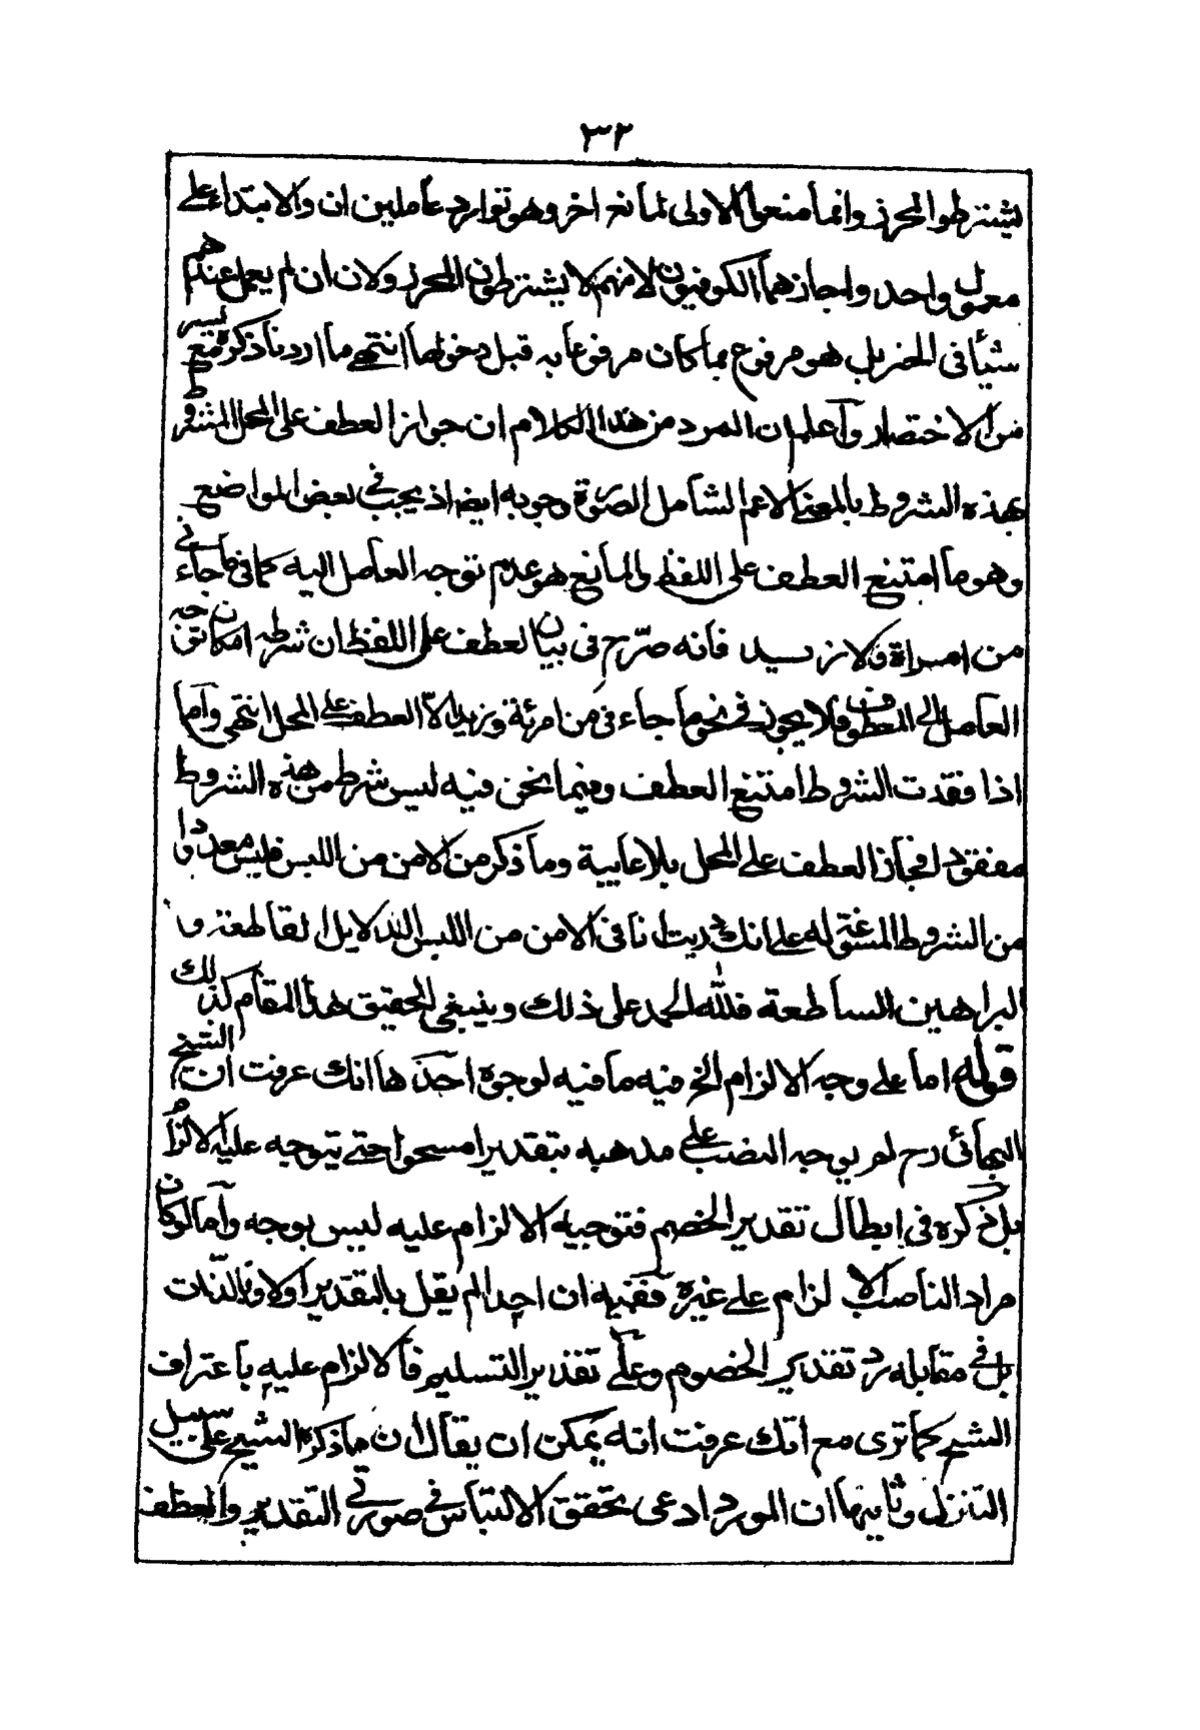 ٣٢
يشترطوا المحرز وانما منعوا الاولى لمانع اخر وهو توارد عاملين ان والابتداء على
معمول واحد واجازهما الكوفيون لانهم لا يشترطون المحرز ولان ان لم يعمل عندهم
شيأ فى الخبر بل هو مرفوع بما كان مرفوعا به قبل دخولها انتهى ما اردنا ذكره مع يسير
من الاختصار وآعلم ان المرد من هذا الكلام ان جواز العطف على المحل المشروط
بهذه الشروط بالمعنى الاعم الشامل لصورة وجوبه ايضا اذ يجب فى بعض المواضع
وهو ما امتنع العطف على اللفظ والمانع هو عدم توجه العامل اليه كما فى ما جاءنى
من امراة ولا زيد فانه صرّح فى بيان العطف على اللفظ ان شرطه امكان توجه
العامل الى المعطوف فلا يجوز فى نحو ما جاءنى من امرئة وزيد الّا العطف على المحل انتهى وآما
اذا فقدت الشروط امتنع العطف وفيما نحن فيه ليس شرط من هذه الشروط
مفقودا فجاز العطف على المحل بلا عايبة وما ذكر من الامن من اللبس فليس معدودا
من الشروط المسوغة له على انك دريت انا فى الامن من اللبس الدلايل القاطعة و
البراهين الساطعة فللّه الحمد على ذلك وينبغى تحقيق هذا المقام كذلك
قوله اما على وجه الالزام الخ فيه ما فيه لوجوه احدها انك عرفت ان الشيخ
البهائى رح لم يوجه النصب على مذهبه بتقدير امسحوا حتى يتوجه عليه الالزام
بل ذكره فى ابطال تقدير الخصم فتوجيه الالزام عليه ليس بوجه وآما لو كان
مراد الناصب الالزام على غيره ففيه ان احدا لم يقل بالتقدير اولا وبالذّات
بل فى مقابله رد تقدير الخصوم وعلى تقدير التسليم فالالزام عليه باعتراف
الشيخ كما ترى مع انك عرفت انه يمكن ان يقال ان ما ذكره الشيخ على سبيل
التنزل وثانيها ان المورد ادعى تحقق الالتباس فى صورتى التقدير والعطف